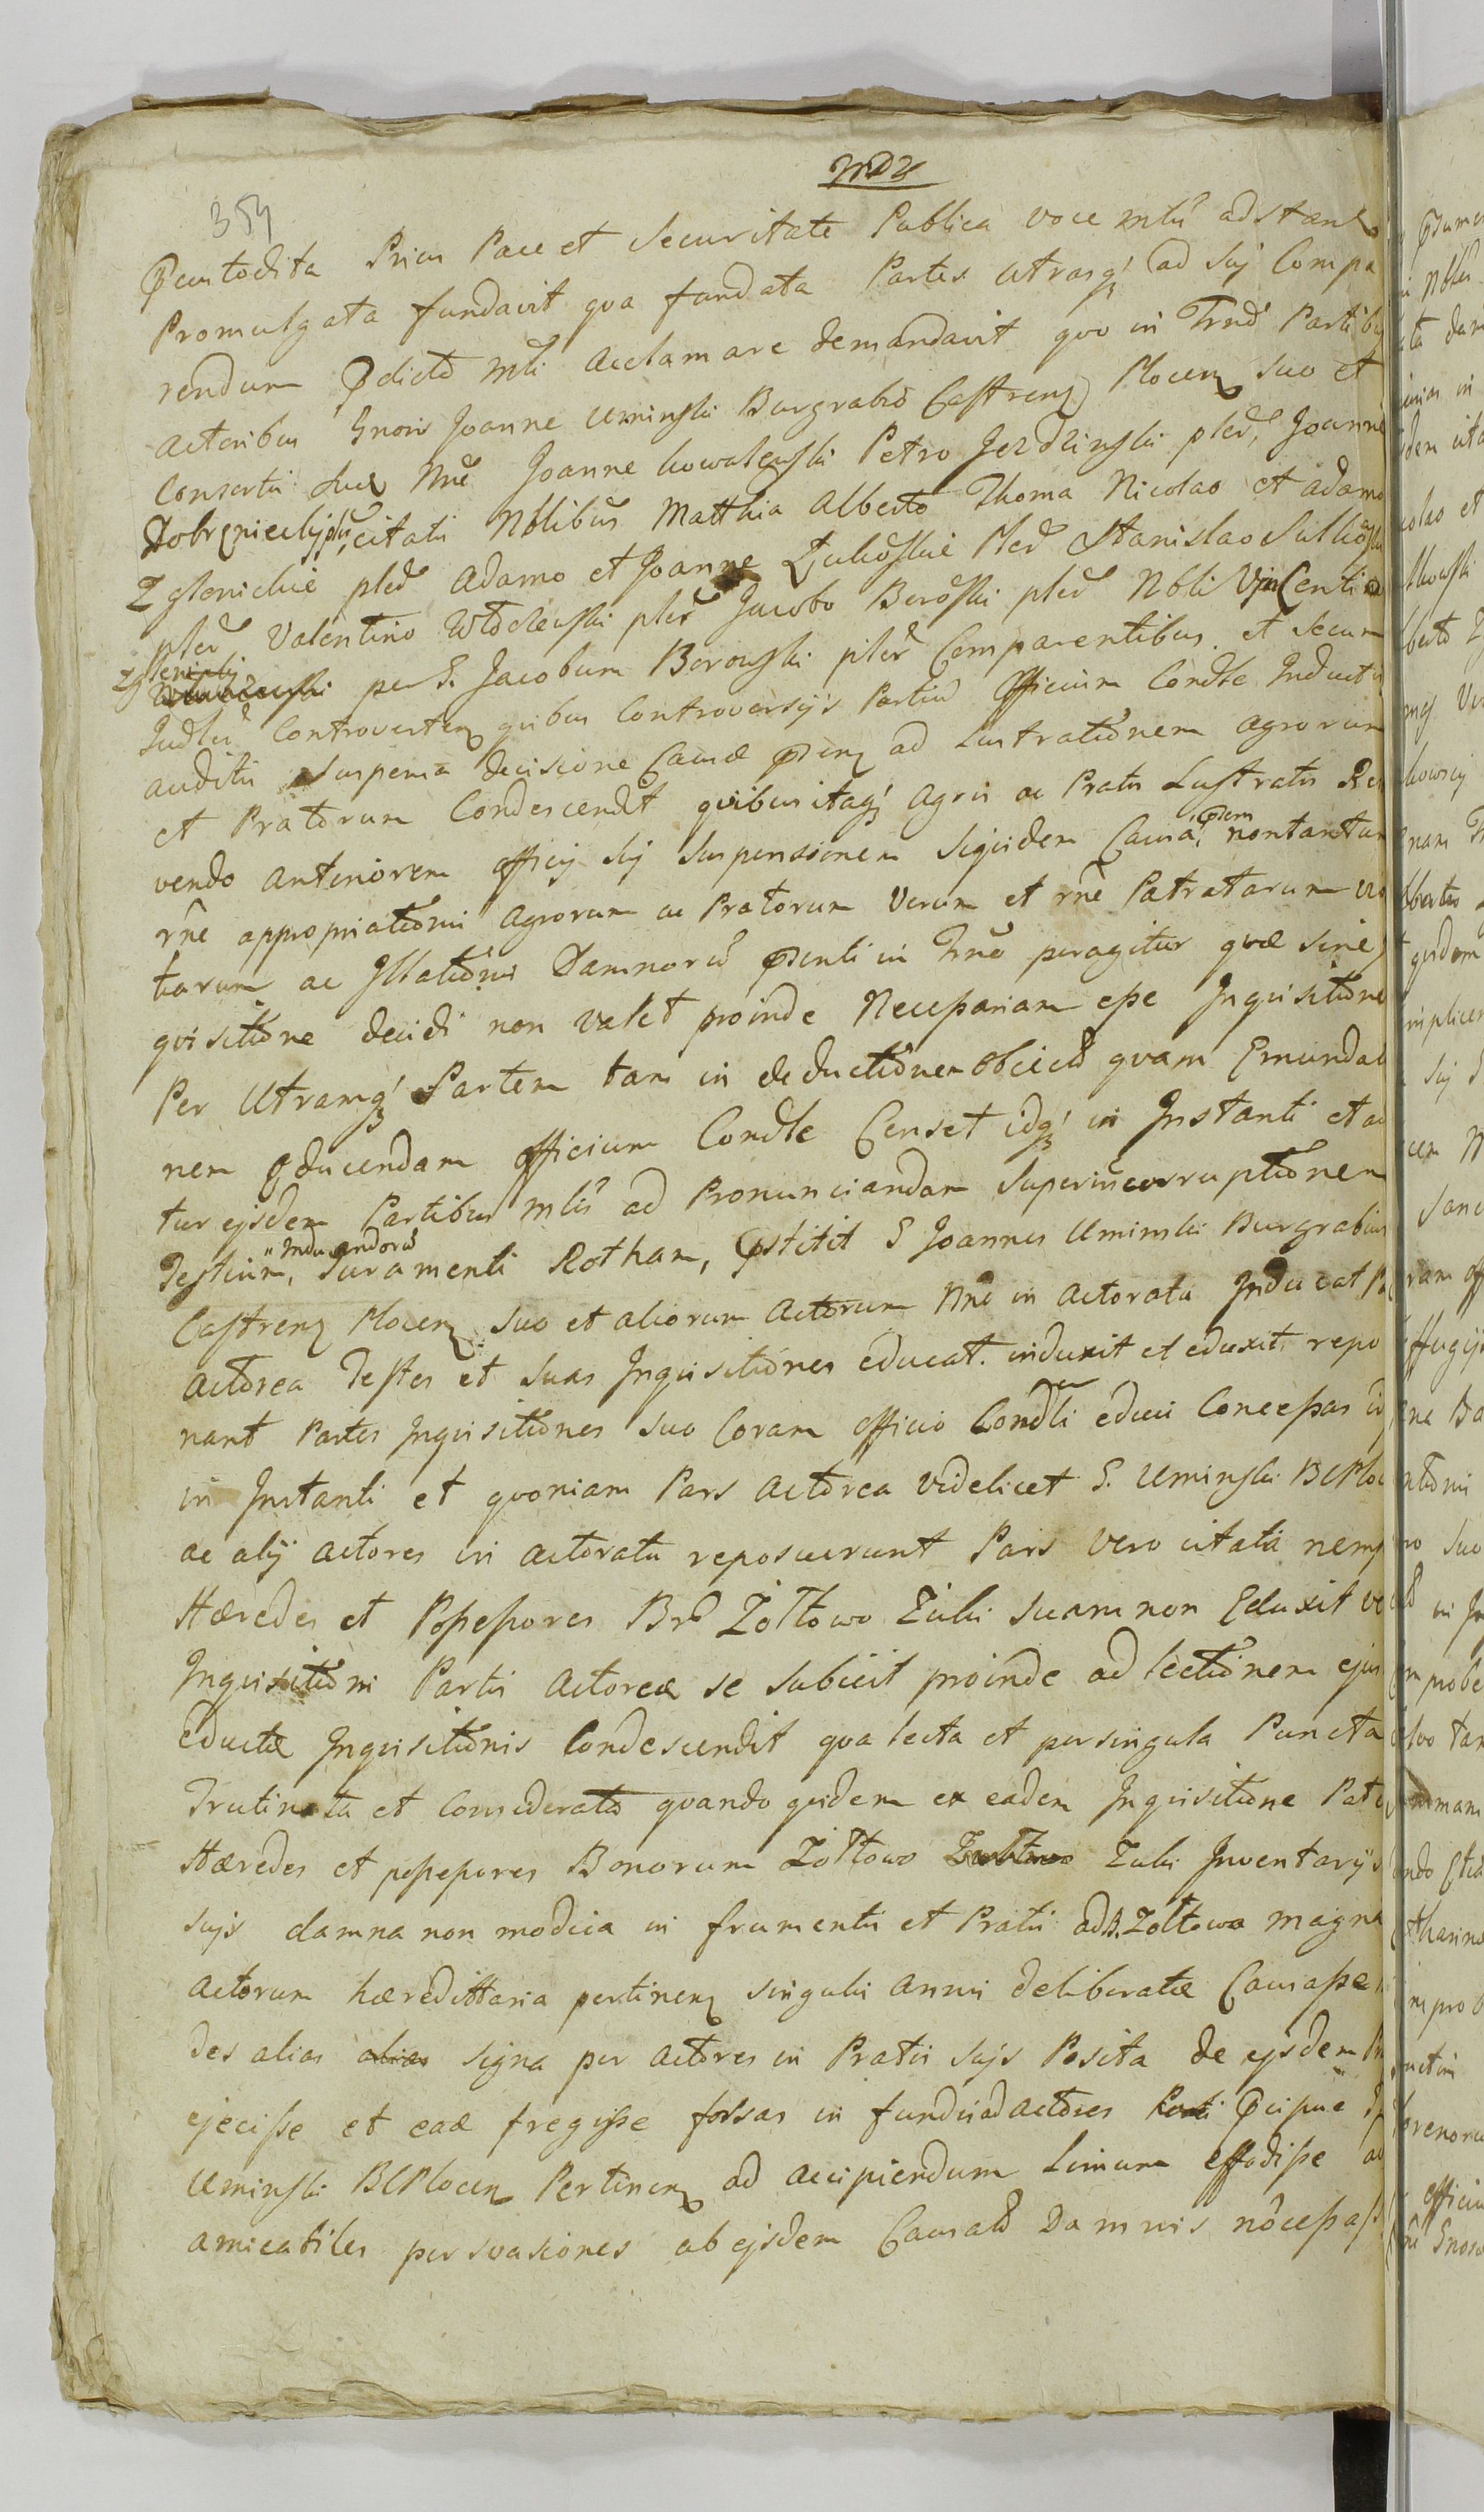 354
Pcustodita Prius Pace et Securitate Publica voce mli adstantis
Promulgata fundavit qva fundata Partes utrasq; ad sui Compa
rendum Pdicto mli acclamare demandavit qvo in Trno Partibus
actoribus Gnosis Joanne Uminski Burgrabio Castrens Plocens Suo et
Consortis suae Nne Joanne Kowalewski Petro Jezdzinski pled, Joanne
Dobrzniecki pled, citatis Nblibus Matthia Alberto Thoma Nicolao et Adamo
Zglenickie pled Adamo et Joanne Żukoskie pled Stanislao Sulkoski
pled Valentino Wloclewski pled Jacobo Boroski pled Nobli Vincentio
Zglenicki per G. Jacobum Borowski pled Comparentibus et Secum
Judler Controverten quibus Controversijs Partiu Officium Condle Inductis
auditis Suspensa decisione Causae Psens ad Lustrationem agrorum
et Pratorum Condescendt quibus itaq; Agris ac Pratis Lustratis Re
vendo Anteriorem officij sui Suspensionem Siquidem Causa, Psens non tantum
rne appropriationis Agrorum ac Pratorum Verum et rne Patratarum vio
tarum ac Illationis Damnoru Psenti in Trno peragitur quae sine
qvisitione decidi non valet proinde Necessariam esse Inquisitione
Per Utramq; Partem tam in deductionem Obiecto quam Emunda
nem Pducendam Officium Condle Censet idq; in Instanti et ad
tur eisdem Partibus mlis ad Pronunciandam Superius corruptionem
Testium, Inducendoru Juramenti Rotham, Pstitit G Joannes Uminski Burgrabius
Castrens Plocens Suo et aliorum Actorum Nne in Actoratu Inducat Pa
Actorea Testes et suas Inquisitiones educat. induxit et eduxit repo
nant Partes Inquisitiones suo Coram Officio Condli educi Concessas id
in Instanti et quoniam Pars Actorea videlicet G. Uminski BCPloc
ac alij actores in actoratu reposuerunt Pars vero citata nemp
Haeredes et Possessores Brd Żołtowo Żuki suam non Eduxit ve
Inquisitioni Partis Actoreae se Subiecit proinde ad lectionem ejus
eductae Inquisitionis Condescendit qva lecta et per singula Puncta
Trutinata et Considerata quando quidem ex eadem Inquisitione Pate
Haeredes et possessores Bonorum Żołtowo Żuki Inventarijs
suis damna non modica in frumentis et Pratis ad B. Żołtowo magna
Actorum haeredittaria pertinens singulis annis deliberatae Causasse
des alias alias signa per Actores in Pratis suis Posita de eisdem
ejecisse et eas fregisse fossas in fundis ad actores Pcipue
Uminski BCPlocens Pertinens ad accipiendum Limum effodisse
amicabiles persvasiones ab eisdem Causatis Damnis